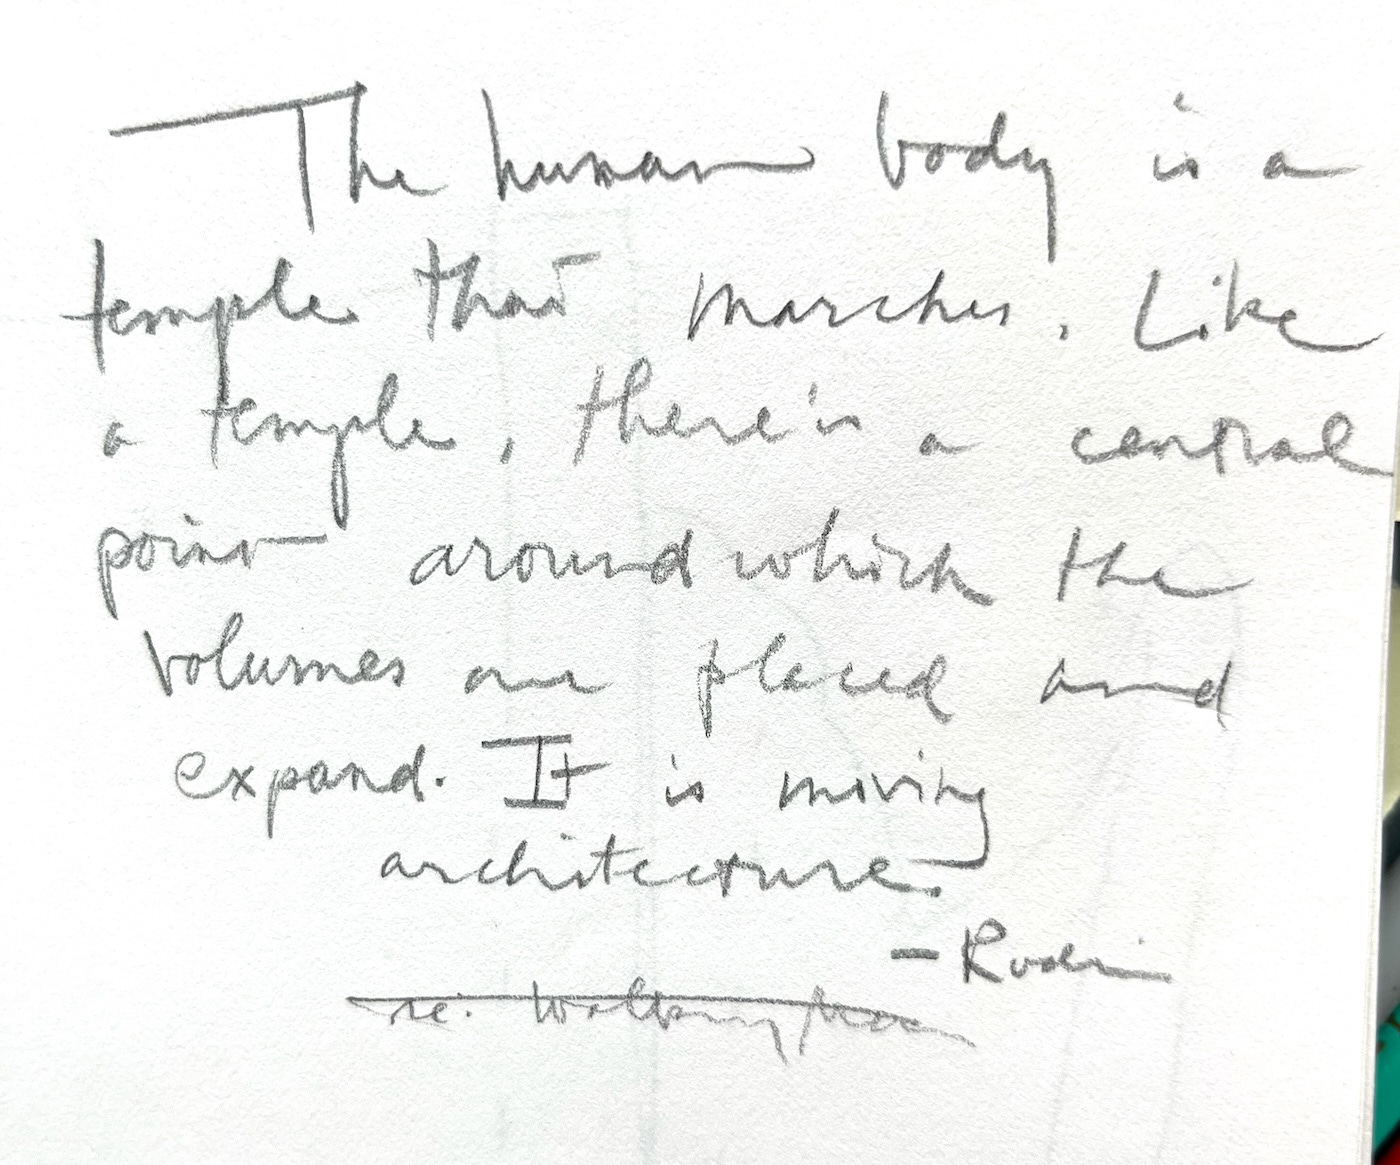 The human body is a
temple that marches. Like
a temple, there is a central
point around which the
volumes are placed and
expand. It is moving
architecture.
- Rodin
re: Walking Man